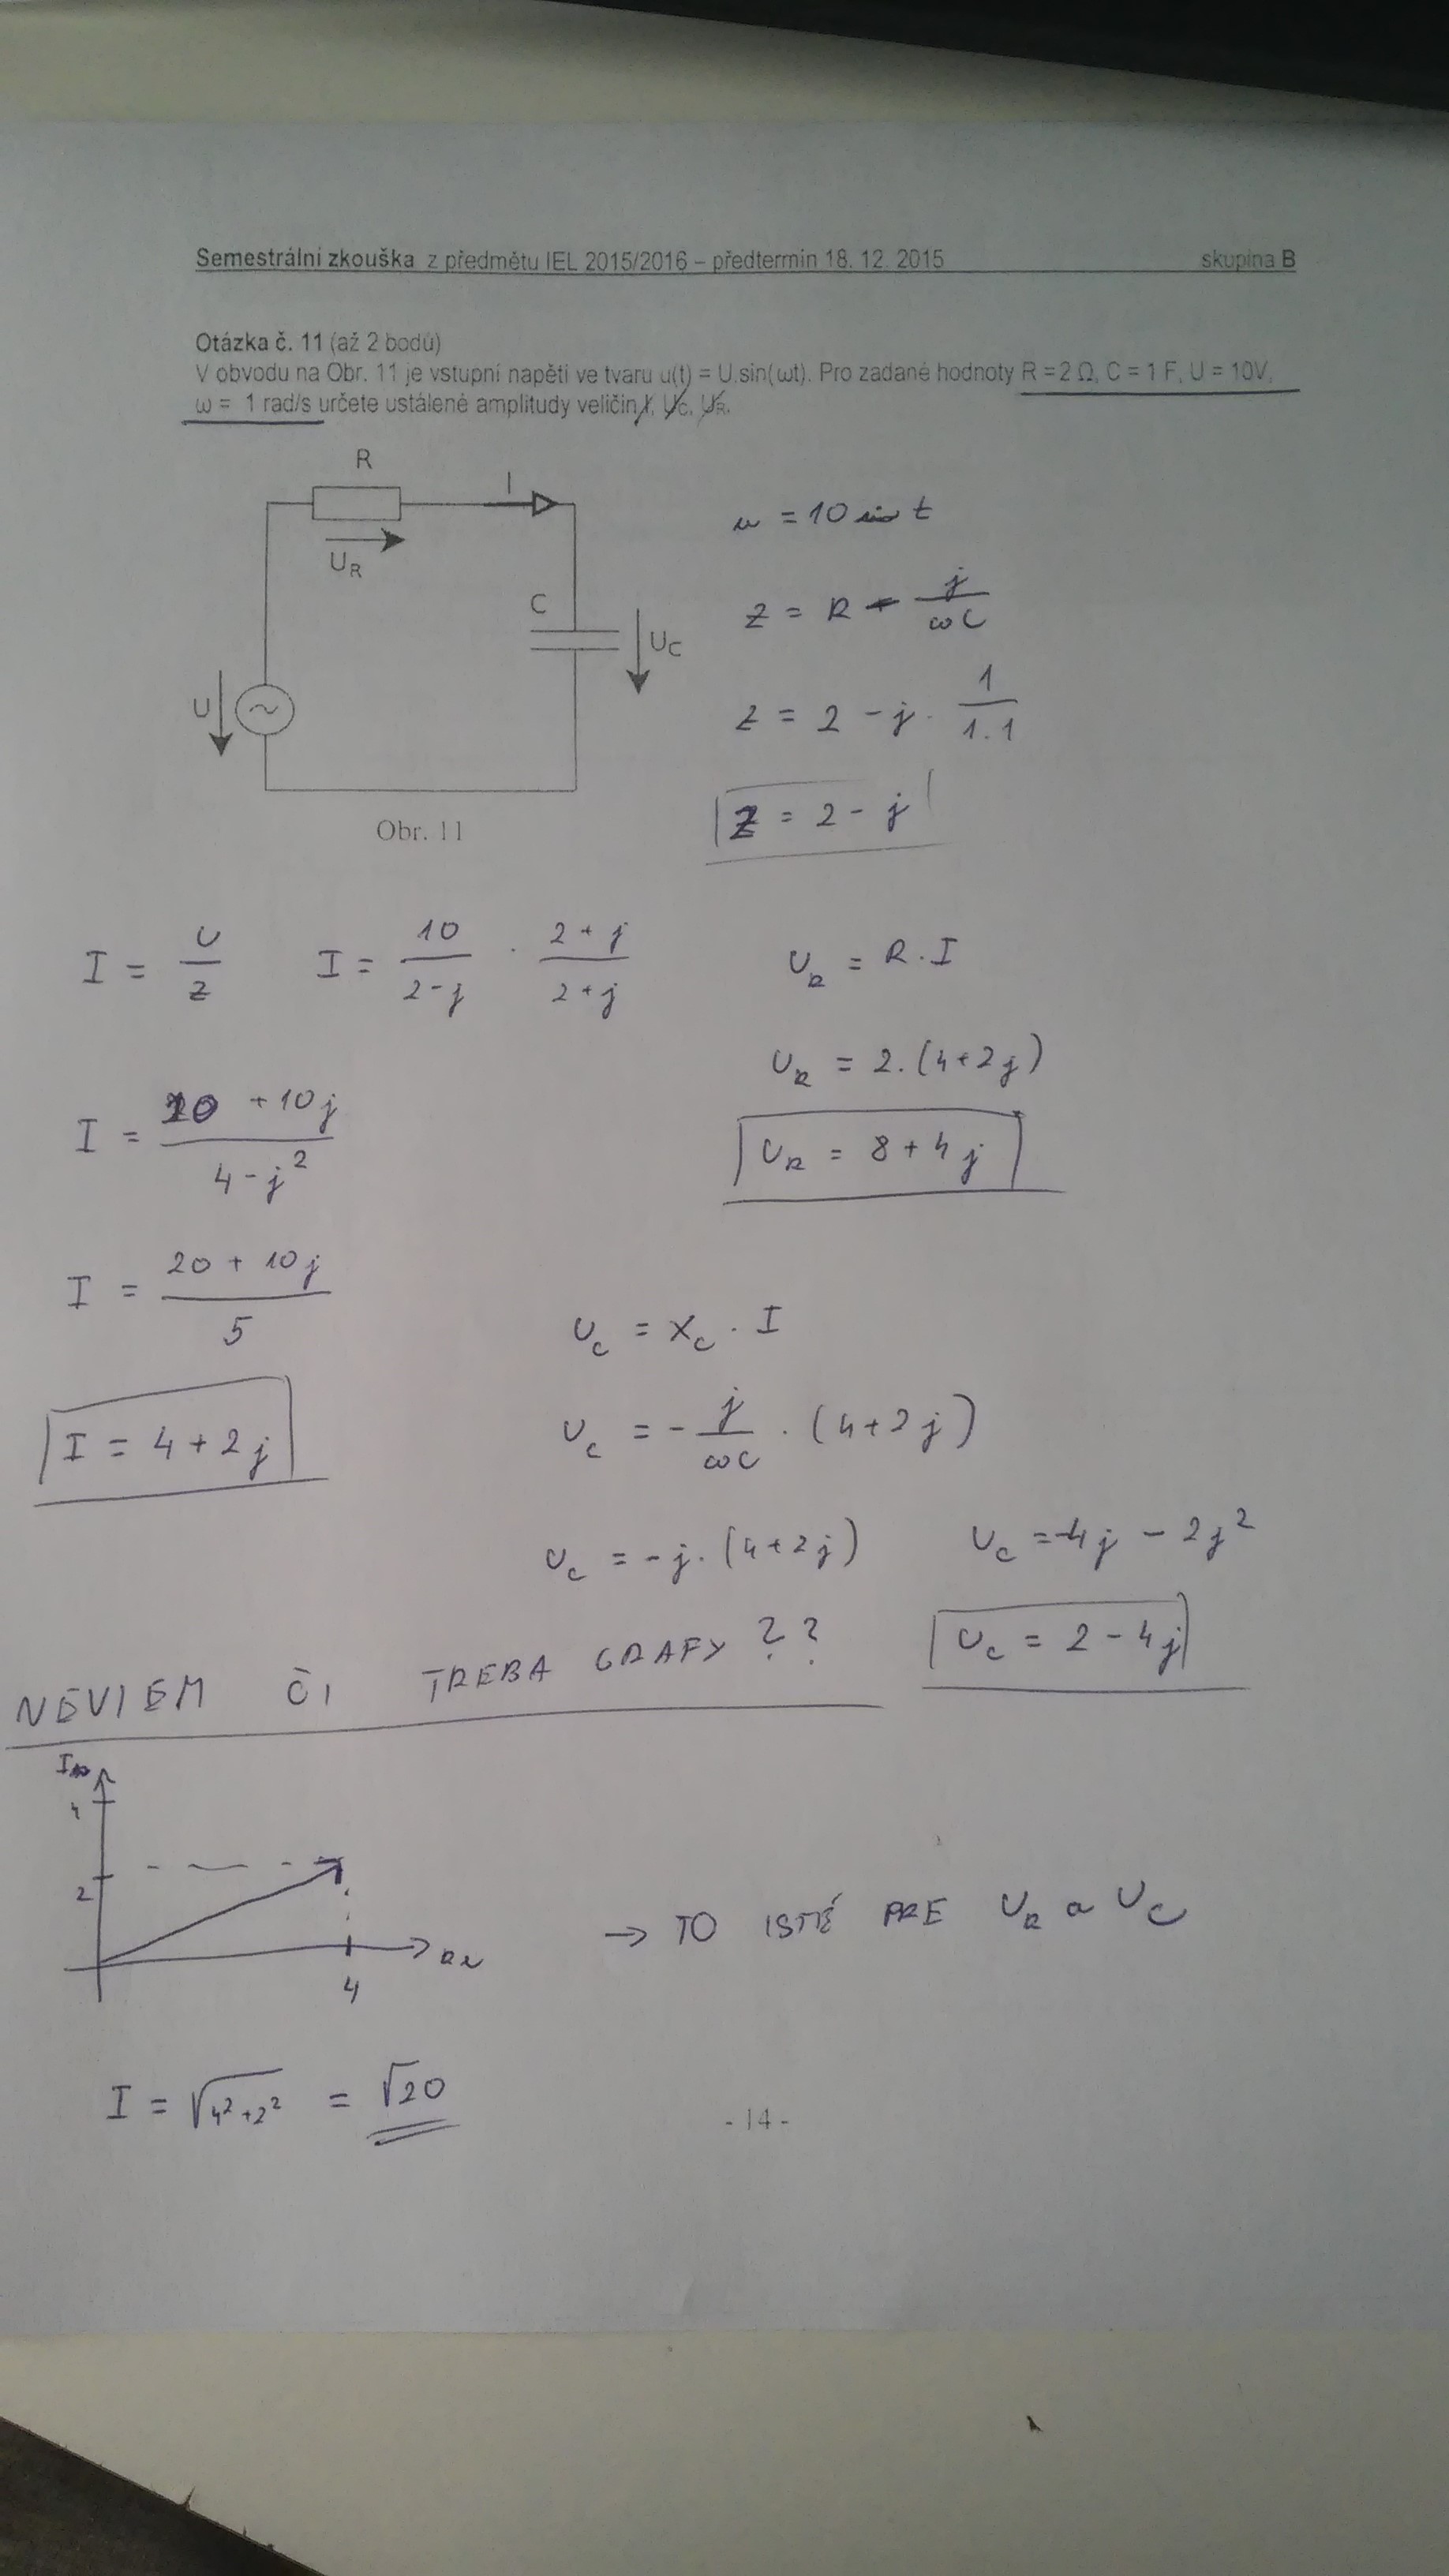 Semestrální zkouška z předmětu IEL 2015/2016 – předtermín 18. 12. 2015 skupina B
Otázka č. 11 (až 2 bodů)
V obvodu na Obr. 11 je vstupní napětí ve tvaru u(t) = U.sin(ωt). Pro zadané hodnoty R =2 Ω, C = 1 F, U = 10V,
ω = 1 rad/s určete ustálené amplitudy veličin I, UC, UR.
R
I
UR
C
UC
U
~
Obr. 11
u = 10 sin t
Z = R - j/ωC
Z = 2 - j . 1/1.1
Z = 2 - j
I = U/Z I = 10/2-j . 2+j/2+j
UR = R . I
UR = 2.(4+2j)
I = 20 + 10j/4-j²
UR = 8 + 4j
I = 20 + 10j/5
UC = XC . I
I = 4 + 2j
UC = - j/ωC . (4+2j)
UC = -j.(4+2j) UC = -4j - 2j²
UC = 2 - 4j
NEVIEM ČI TREBA GRAFY ??
Im
4
2
Re
4
→ TO ISTÉ PRE UR a UC
I = √4²+2² = √20
- 14 -